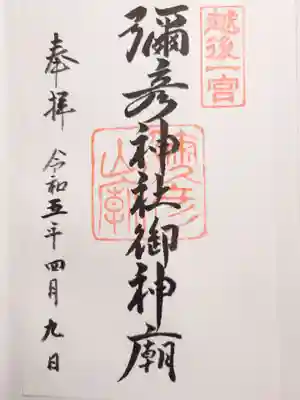 越後一宮
彌彦神社御神廟
奉拝
令和五年四月九日